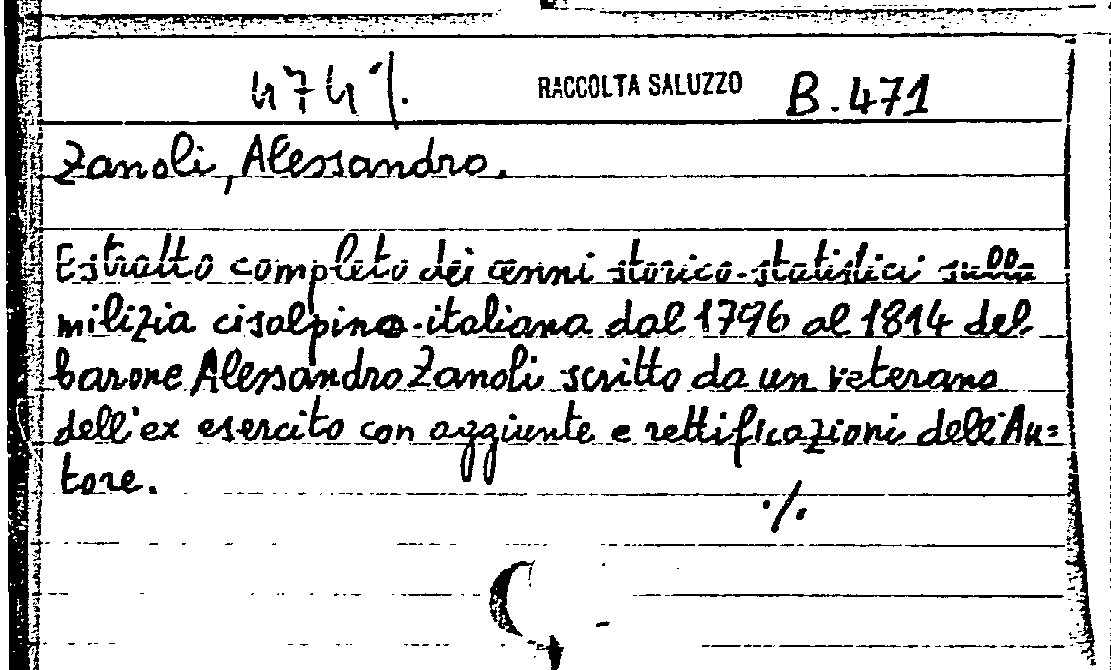 474 ·/. RACCOLTA SALUZZO B.471
Zanoli, Alessandro.
Estratto completo dei cenni storico-statistici sulla
milizia cisalpino-italiana dal 1796 al 1814 del
barone Alessandro Zanoli scritto da un veterano
dell'ex esercito con aggiunte e rettificazioni dell'Au=
tore.
·/.